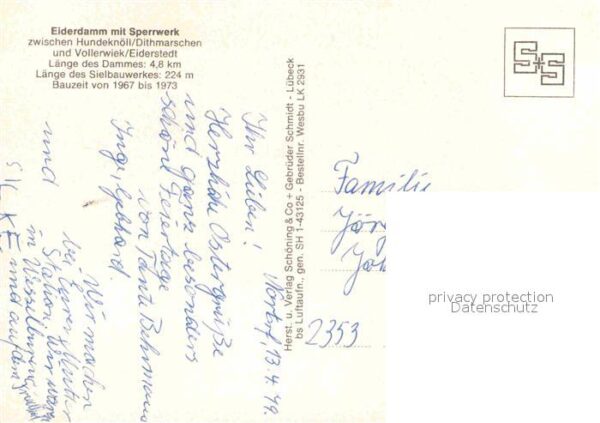 Eiderdamm mit Sperrwerk
zwischen Hundeknöll/Dithmarschen
und Vollerwiek/Eiderstedt
Länge des Dammes: 4,8 km
Länge des Sielbauwerkes: 224 m
Bauzeit von 1967 bis 1973
S+S
Herst. u. Verlag Schöning & Co + Gebrüder Schmidt - Lübeck
bs Luftaufn., gen. SH 1-43125 - Bestellnr. Wesbu LK 2931
13.4.79.
Ihr Lieben!
Herzliche Ostergrüße
und ganz besonders
schöne Feiertage
von Tante
Wir machen
bei Eurer Mutter
Station.
in
und
und auf
Familie
2353
privacy protection
Datenschutz